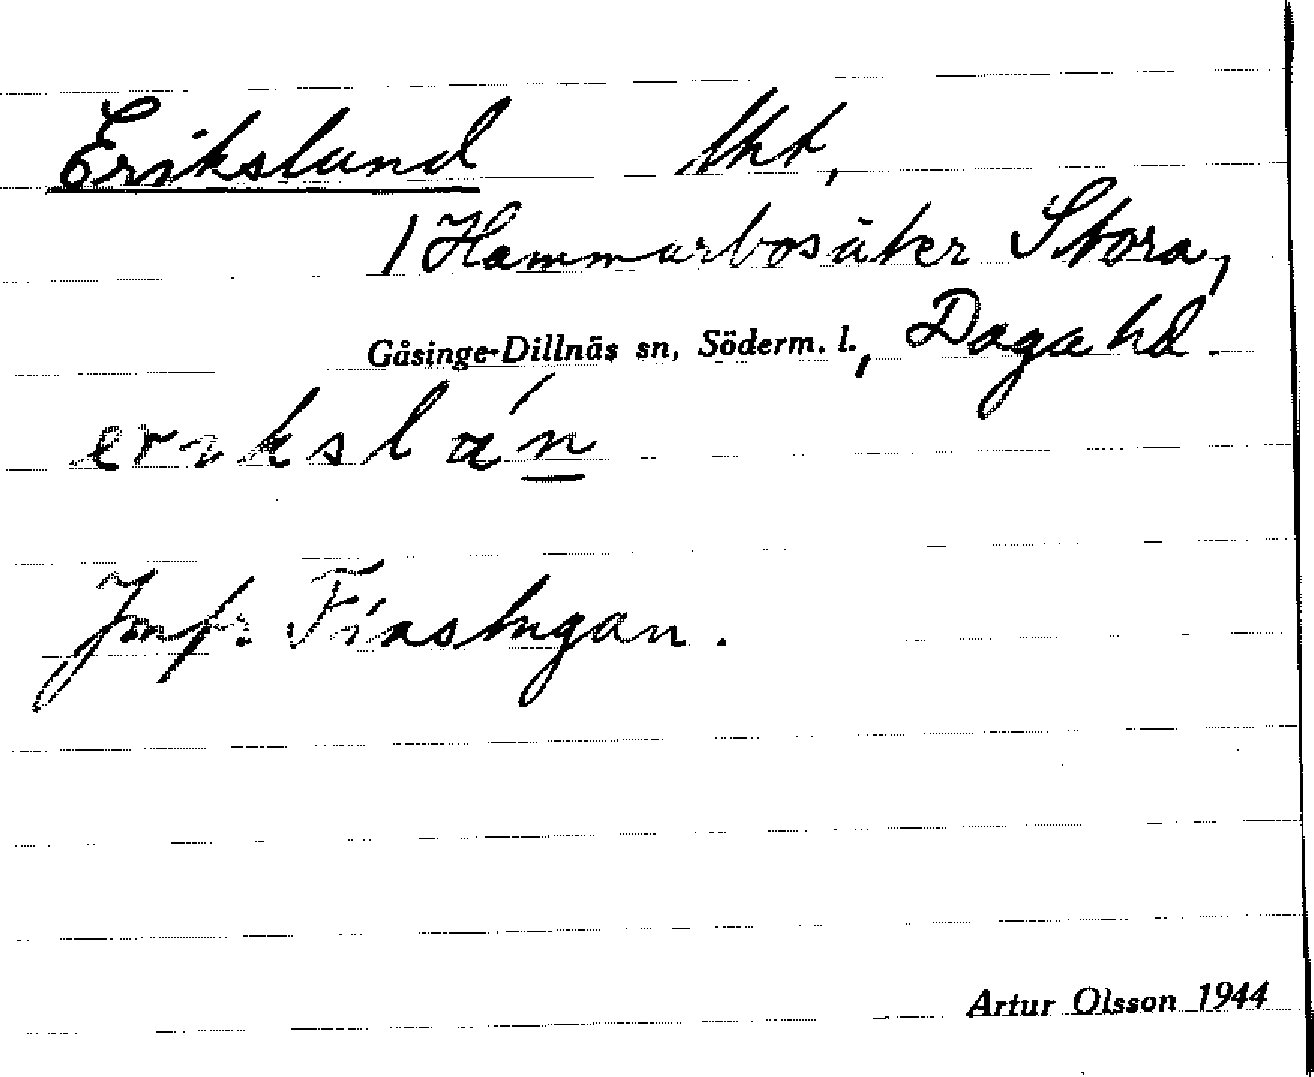 Erikslund lht,
/ Hammarbosäter Stora,
Gåsinge-Dillnäs sn, Söderm. l., Daga hd.
erikslán
Jmfr Finstugan.
Artur Olsson 1944